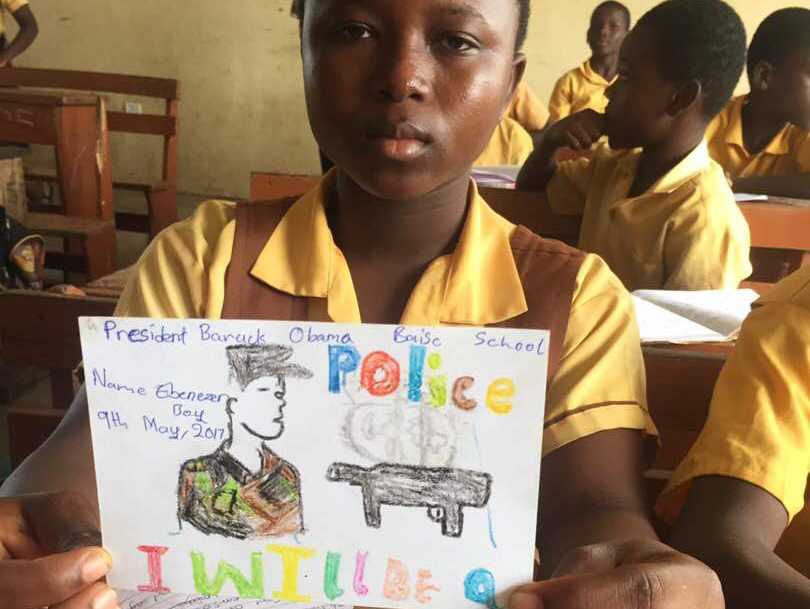 President Barack Obama Baisc School
Name Ebenezer
Boy
9th May, 2017
Police
I WILL BE a